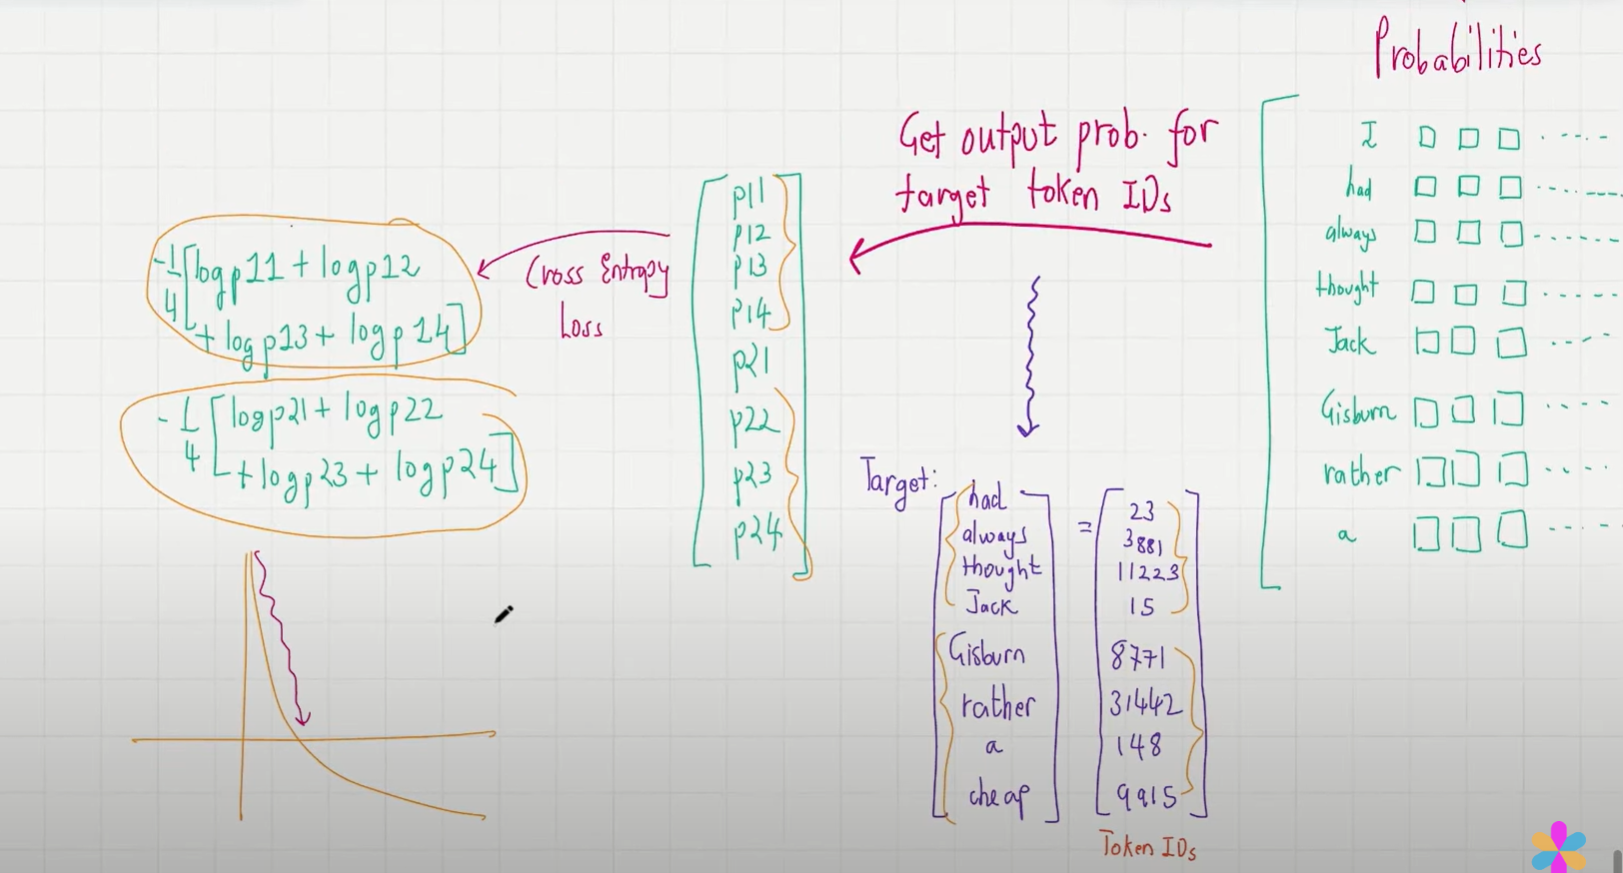 Probabilities
I
had
always
thought
Jack
Gisburn
rather
a
Get output prob. for
target token IDs
p11
p12
p13
p14
p21
p22
p23
p24
Cross Entropy
Loss
-1/4 [log p11 + log p12
+ log p13 + log p14]
-1/4 [log p21 + log p22
+ log p23 + log p24]
Target:
had
always
thought
Jack
Gisburn
rather
a
cheap
=
23
3881
11223
15
8771
31442
148
9915
Token IDs